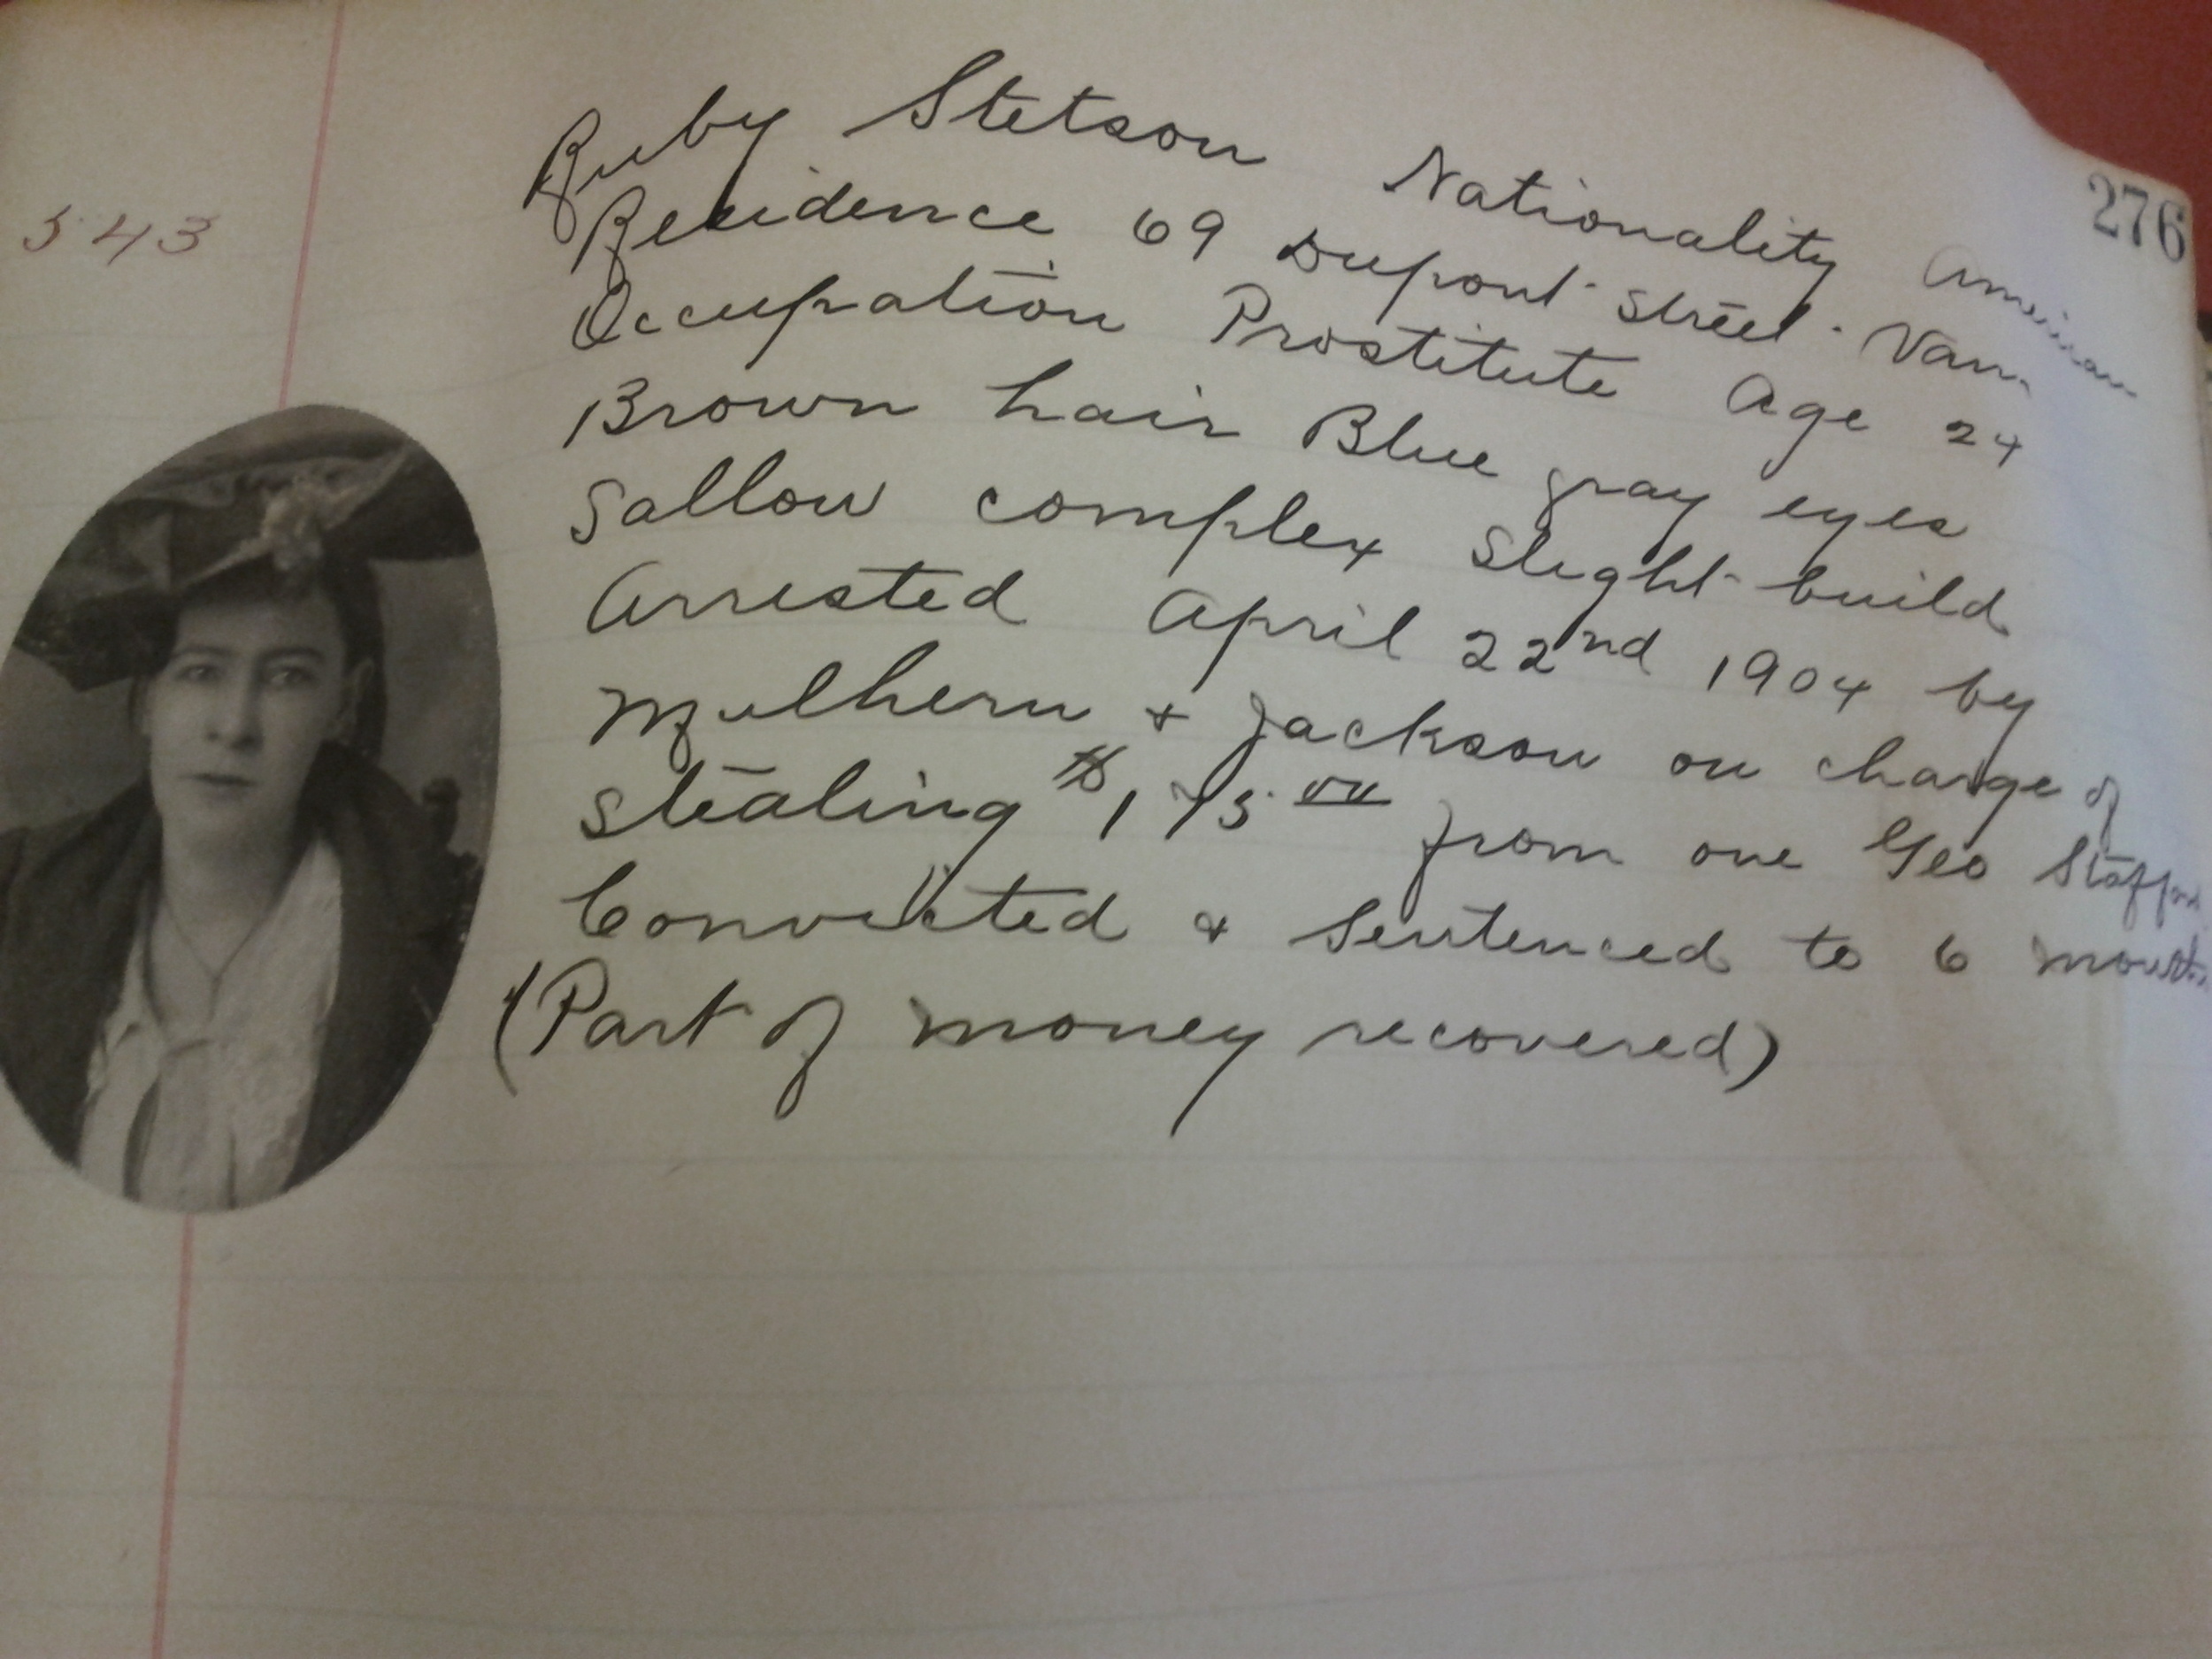 276
543
Ruby Stetson Nationality American
Residence 69 Dupont Street. Vanr
Occupation Prostitute Age 24
Brown hair Blue gray eyes
Sallow complex Slight build
Arrested April 22nd 1904 by
Mulhern & Jackson on charge of
stealing $175.00 from one Geo Stafford
Convicted & Sentenced to 6 months
(Part of money recovered)